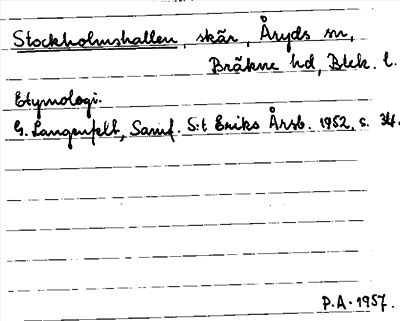 Stockholmshallen, skär, Åryds sn,
Bräkne hd, Blek. l.
Etymologi.
G. Langenfelt, Samf. S:t Eriks Årsb. 1952, s. 34.
P.A. 1957.